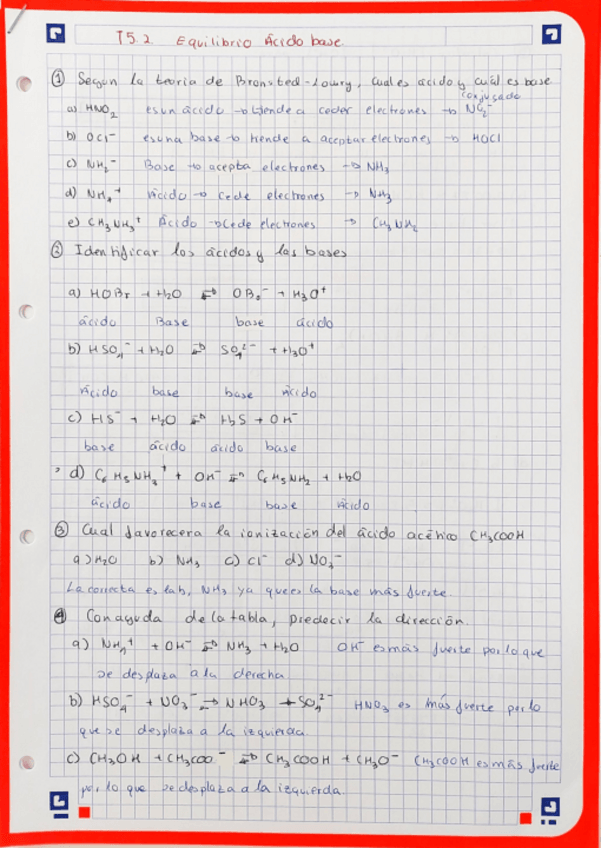 T5.2 Equilibrio Ácido base
① Segun la teoria de Bronsted-Loury, cual es ácido y cuál es base
conjugado
a) HNO₂ es un ácido → tiende a ceder electrones → NO₂⁻
b) OCl⁻ es una base → tiende a aceptar electrones → HOCl
c) NH₂⁻ Base → acepta electrones → NH₃
d) NH₄⁺ Ácido → cede electrones → NH₃
e) CH₃NH₃⁺ Ácido → Cede electrones → CH₃NH₂
② Identificar los ácidos y las bases
a) HOBr + H₂O ⇌ OBr⁻ + H₃O⁺
ácido Base base ácido
b) HSO₄⁻ + H₂O ⇌ SO₄²⁻ + H₃O⁺
Ácido base base ácido
c) HS⁻ + H₂O ⇌ H₂S + OH⁻
base ácido ácido base
d) C₆H₅NH₃⁺ + OH⁻ ⇌ C₆H₅NH₂ + H₂O
ácido base base ácido
③ Cual favorecera la ionización del ácido acético CH₃COOH
a) H₂O b) NH₃ c) Cl⁻ d) NO₃⁻
La correcta es la b, NH₃ ya que es la base más fuerte.
④ Con ayuda de la tabla, predecir la dirección.
a) NH₄⁺ + OH⁻ ⇌ NH₃ + H₂O OH⁻ es más fuerte por lo que
se desplaza a la derecha
b) HSO₄⁻ + NO₃⁻ ⇌ NHO₃ + SO₄²⁻ HNO₃ es más fuerte por lo
que se desplaza a la izquierda.
c) CH₃OH + CH₃COO⁻ ⇌ CH₃COOH + CH₃O⁻ CH₃COOH es más fuerte
por lo que se desplaza a la izquierda.